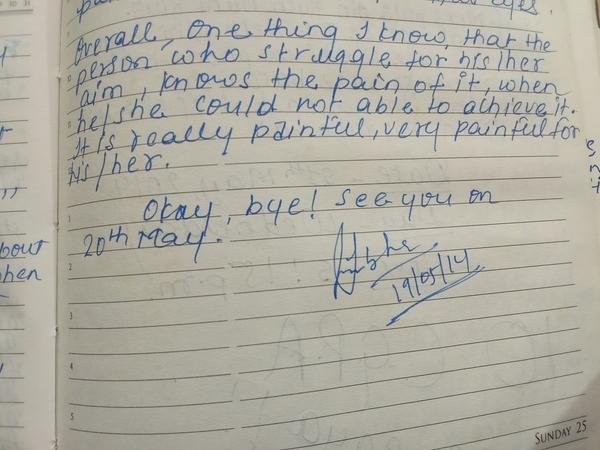 eyes.
Overall, One thing I know, that the
person who struggle for his/her
aim, knows the pain of it, when
he/she could not able to achieve it.
It is really painful, very painful for
his/her.
Okay, bye! See you on
20th May.
19/05/14
bout
hen
1
2
3
4
5
SUNDAY 25